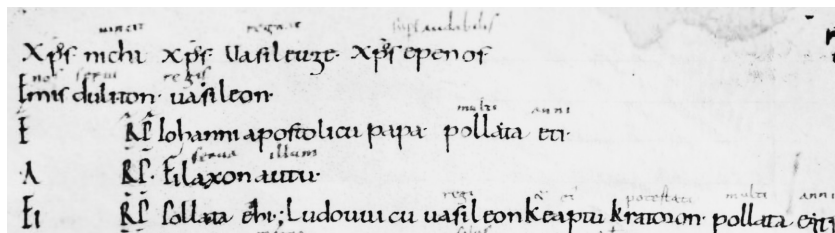 uincit regnat laudabilis
Xp̄s nichi Xp̄s Uasileuge Xp̄s epenos
nos serui regis
Emis duliton uasileon
multi anni
E R̄P̄ Iohanni apostolicu papa pollata eti
serua illum
A R̄P̄ Filaxon autu
regi potestati multi anni
Ei R̄P̄ Pollata ethi; Ludouuicu uasileon K eaptu kratoron pollata etti